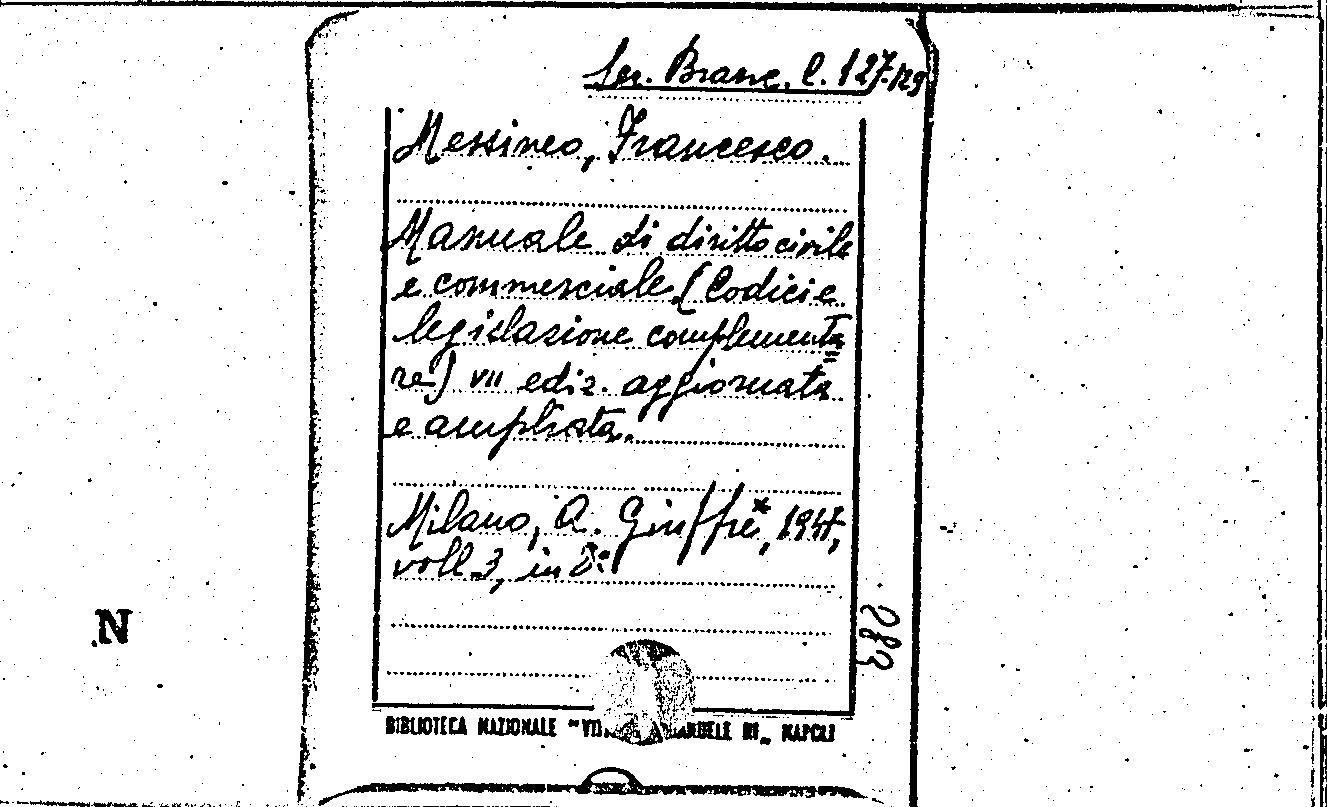 Ser. Branc. C. 127-129
Messineo, Francesco.
Manuale di diritto civile
e commerciale. (Codici e
legislazione complementa=
re) VII ediz. aggiornata
e ampliata.
Milano, A. Giuffrè, 1947,
voll. 3, in 8°.
283
N
BIBLIOTECA NAZIONALE NAPOLI